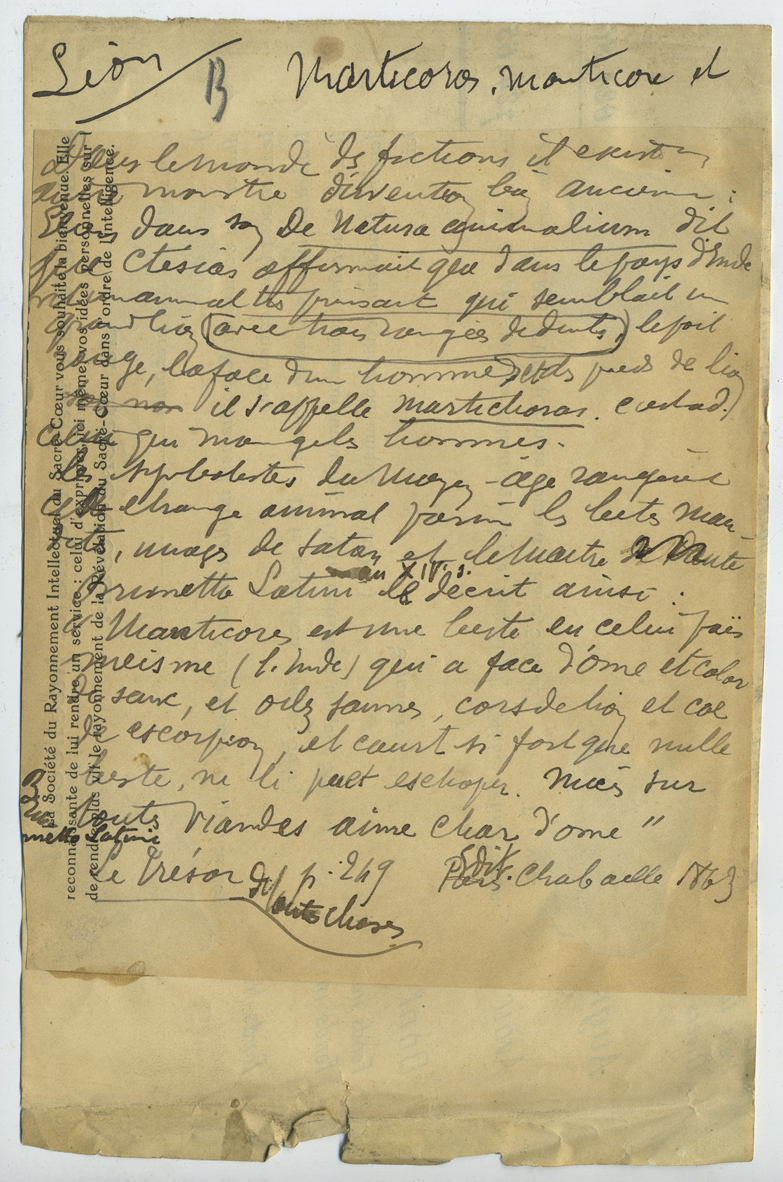 Léon B Marticoros, manticore et
Dans le monde des fictions il existe un
autre monstre d'invention bien ancienne :
Elien dans son De Natura animalium dit
que Ctesias affirmait que dans le pays d'Inde
animal très puissant qui semblait un
grand lion (avec trois rangées de dents,) le poil
rouge, la face d'un homme, et les pieds de lion
son nom il s'appelle martichoras. c-à-d.
celui qui mange les hommes.
Les symbolistes du Moyen-âge rangèrent
cet étrange animal parmi les bêtes mau-
dites, images de Satan et le maitre de Dante
au XIVe s.
Brunetto Latini le décrit ainsi :
" Manticores est une beste en celui païs
meisme (l'Inde) qui a face d'ome et color
de sanc, et oilz jaunes, cors de lion et coe
de escorpion, et court si fort que nulle
beste, ne li puet eschaper. Mais sur
toutes viandes aime char d'ome "
Brunetto Latini
Le Trésor de toutes choses p. 249 Edit. Paris. Chabaille 1863
La Société du Rayonnement Intellectuel du Sacré-Cœur vous souhaite la bienvenue. Elle
reconnaissante de lui rendre un service : celui d'exprimer, toi même, vos idées personnelles sur l
de rendre plus vif le rayonnement de la Révélation du Sacré-Cœur dans l'ordre de l'Intelligence.